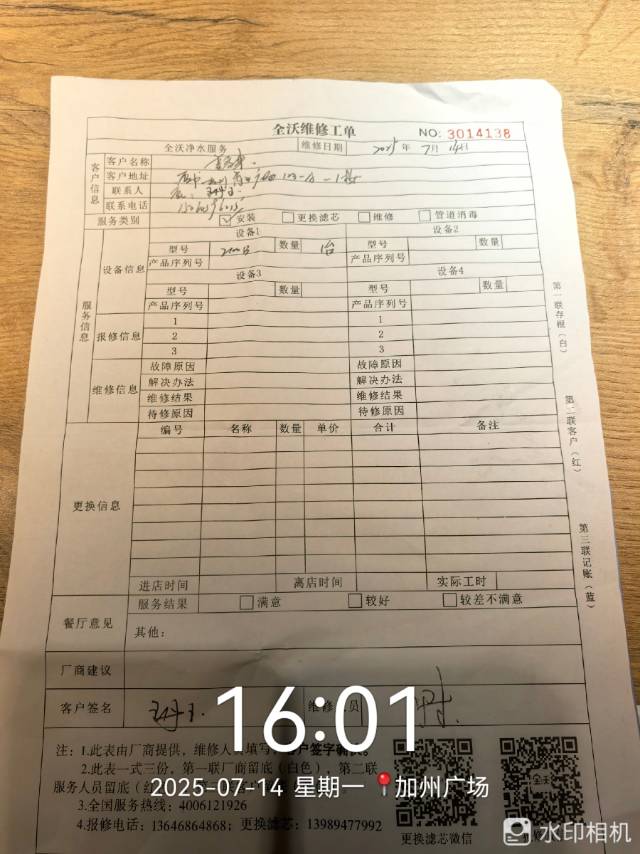 全沃维修工单
NO: 3014138
全沃净水服务 维修日期 2025年7月14日
客户信息
客户名称
客户地址
联系人
联系电话
服务类别 安装 更换滤芯 维修 管道消毒
服务信息
设备信息
设备1 设备2
型号 数量 1台 型号 数量
产品序列号 产品序列号
设备3 设备4
型号 数量 型号 数量
产品序列号 产品序列号
报修信息
1 1
2 2
3 3
维修信息
故障原因 故障原因
解决办法 解决办法
维修结果 维修结果
待修原因 待修原因
更换信息
编号 名称 数量 单价 合计 备注
进店时间 离店时间 实际工时
餐厅意见
服务结果 满意 较好 较差不满意
其他:
厂商建议
客户签名 维修人员
注: 1.此表由厂商提供, 维修人员填写, 客户签字确认。
2.此表一式三份, 第一联厂商留底(白色), 第二联
服务人员留底(红
3.全国服务热线: 4006121926
4.报修电话: 13646864868; 更换滤芯: 13989477992
更换滤芯微信
全沃
第一联存根(白)
第二联客户(红)
第三联记账(蓝)
16:01
2025-07-14 星期一 加州广场
水印相机